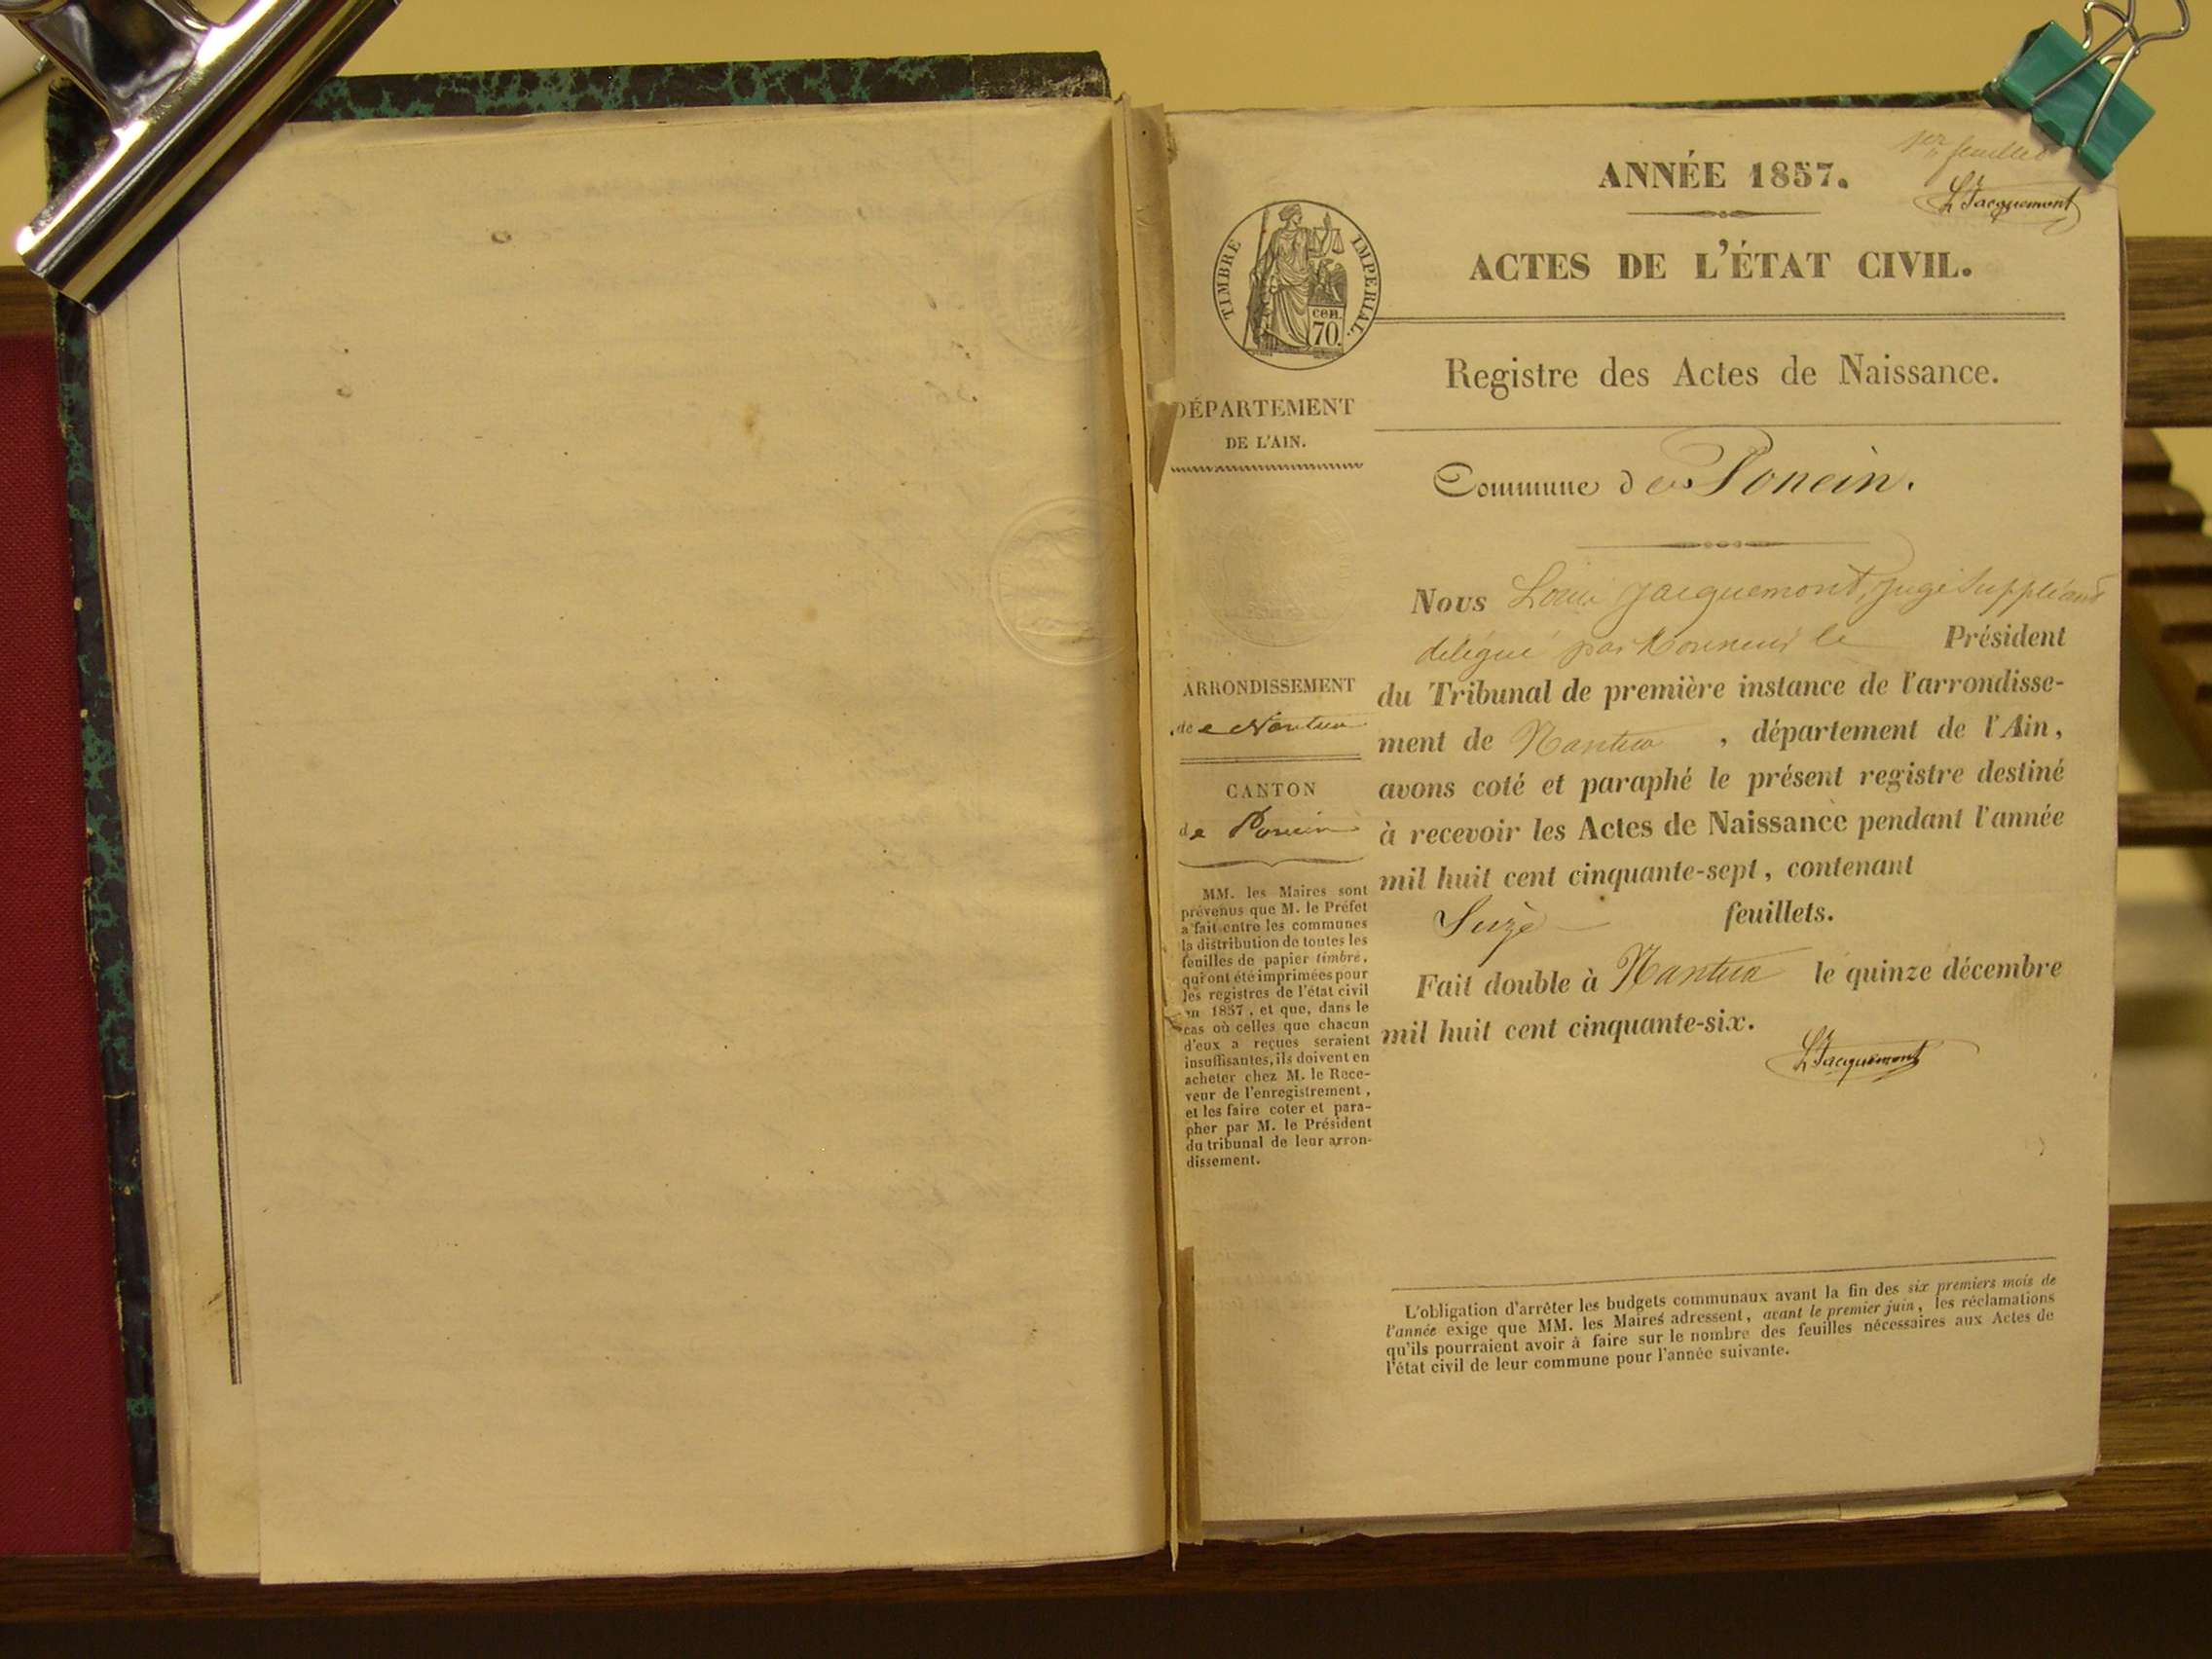 1er feuillet
L Jacquemont
ANNÉE 1857.
ACTES DE L'ÉTAT CIVIL.
TIMBRE IMPERIAL.
cen.
70.
Registre des Actes de Naissance.
DÉPARTEMENT
DE L'AIN.
Commune de Poncin.
ARRONDISSEMENT
de Nantua
CANTON
de Poncin
MM. les Maires sont
prévenus que M. le Préfet
a fait entre les communes
la distribution de toutes les
feuilles de papier timbré,
qui ont été imprimées pour
les registres de l'état civil
en 1857, et que, dans le
cas où celles que chacun
d'eux a reçues seraient
insuffisantes, ils doivent en
acheter chez M. le Rece-
veur de l'enregistrement,
et les faire coter et para-
pher par M. le Président
du tribunal de leur arron-
dissement.
Nous Louis Jacquemont, juge suppléant
délégué par Monsieur le Président
du Tribunal de première instance de l'arrondisse-
ment de Nantua, département de l'Ain,
avons coté et paraphé le présent registre destiné
à recevoir les Actes de Naissance pendant l'année
mil huit cent cinquante-sept, contenant
Seize feuillets.
Fait double à Nantua le quinze décembre
mil huit cent cinquante-six.
L Jacquemont
L'obligation d'arrêter les budgets communaux avant la fin des six premiers mois de
l'année exige que MM. les Maires adressent, avant le premier juin, les réclamations
qu'ils pourraient avoir à faire sur le nombre des feuilles nécessaires aux Actes de
l'état civil de leur commune pour l'année suivante.